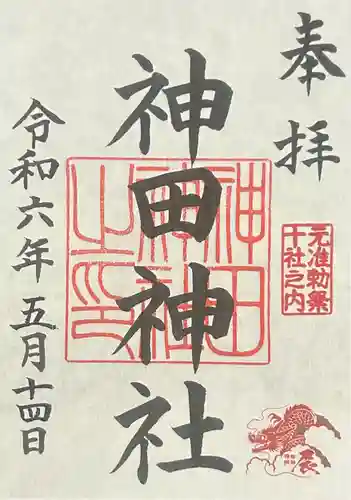 奉拝
元准勅祭
十社之内
神田神社
神田
神社
之印
令和六年 五月十四日
辰